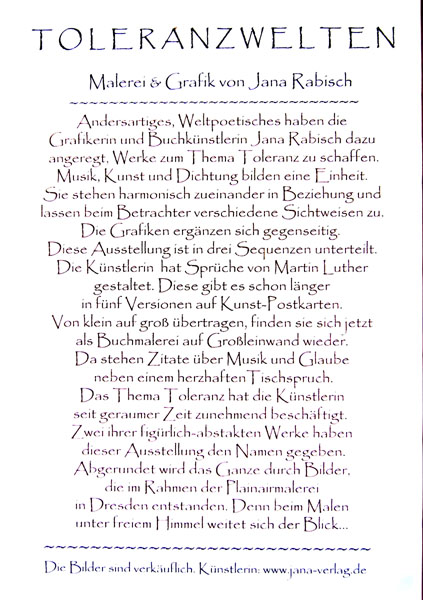 TOLERANZWELTEN
Malerei & Grafik von Jana Rabisch
~~~~~~~~~~~~~~~~~~~~~~~~~~~~~~
Andersartiges, Weltpoetisches haben die
Grafikerin und Buchkünstlerin Jana Rabisch dazu
angeregt, Werke zum Thema Toleranz zu schaffen.
Musik, Kunst und Dichtung bilden eine Einheit.
Sie stehen harmonisch zueinander in Beziehung und
lassen beim Betrachter verschiedene Sichtweisen zu.
Die Grafiken ergänzen sich gegenseitig.
Diese Ausstellung ist in drei Sequenzen unterteilt.
Die Künstlerin hat Sprüche von Martin Luther
gestaltet. Diese gibt es schon länger
in fünf Versionen auf Kunst-Postkarten.
Von klein auf groß übertragen, finden sie sich jetzt
als Buchmalerei auf Großleinwand wieder.
Da stehen Zitate über Musik und Glaube
neben einem herzhaften Tischspruch.
Das Thema Toleranz hat die Künstlerin
seit geraumer Zeit zunehmend beschäftigt.
Zwei ihrer figürlich-abstakten Werke haben
dieser Ausstellung den Namen gegeben.
Abgerundet wird das Ganze durch Bilder,
die im Rahmen der Plainairmalerei
in Dresden entstanden. Denn beim Malen
unter freiem Himmel weitet sich der Blick...
~~~~~~~~~~~~~~~~~~~~~~~~~~~~~~~~~~
Die Bilder sind verkäuflich. Künstlerin: www.jana-verlag.de